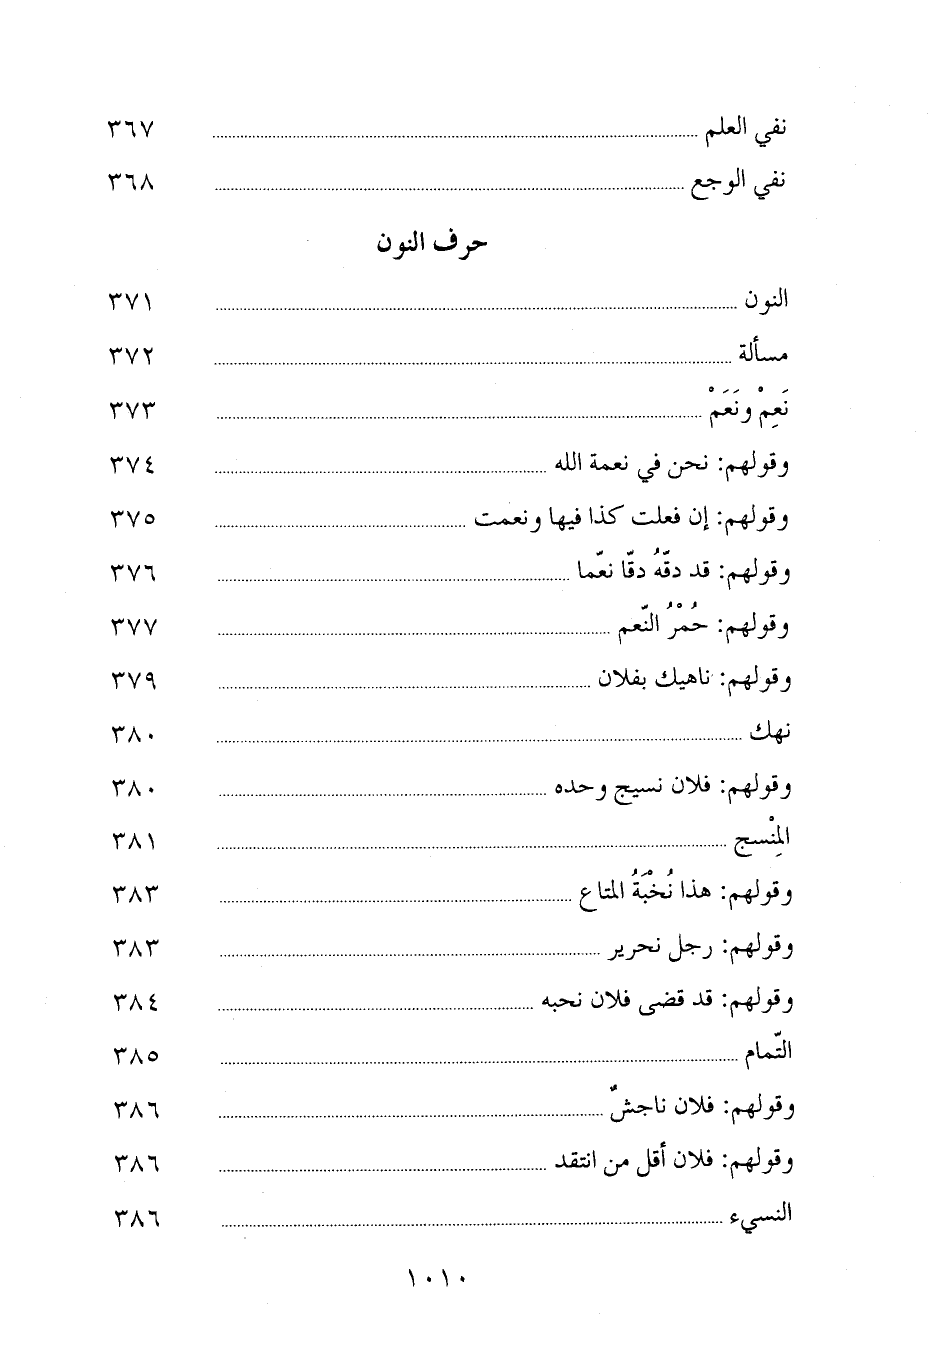 نفي العلم ٣٦٧
نفي الوجع ٣٦٨
حرف النون
النون ٣٧١
مسألة ٣٧٢
نَعِمْ ونَعَمْ ٣٧٣
وقولهم: نحن في نعمة الله ٣٧٤
وقولهم: إن فعلت كذا فيها ونعمت ٣٧٥
وقولهم: قد دقّهُ دقّا نعّما ٣٧٦
وقولهم: حُمْرُ النّعم ٣٧٧
وقولهم: ناهيك بفلان ٣٧٩
نهك ٣٨٠
وقولهم: فلان نسيج وحده ٣٨٠
المِنْسج ٣٨١
وقولهم: هذا نُخْبَةُ المتاع ٣٨٣
وقولهم: رجل نحرير ٣٨٣
وقولهم: قد قضى فلان نحبه ٣٨٤
التّمام ٣٨٥
وقولهم: فلان ناجشٌ ٣٨٦
وقولهم: فلان أقل من انتقد ٣٨٦
النسيء ٣٨٦
١٠١٠